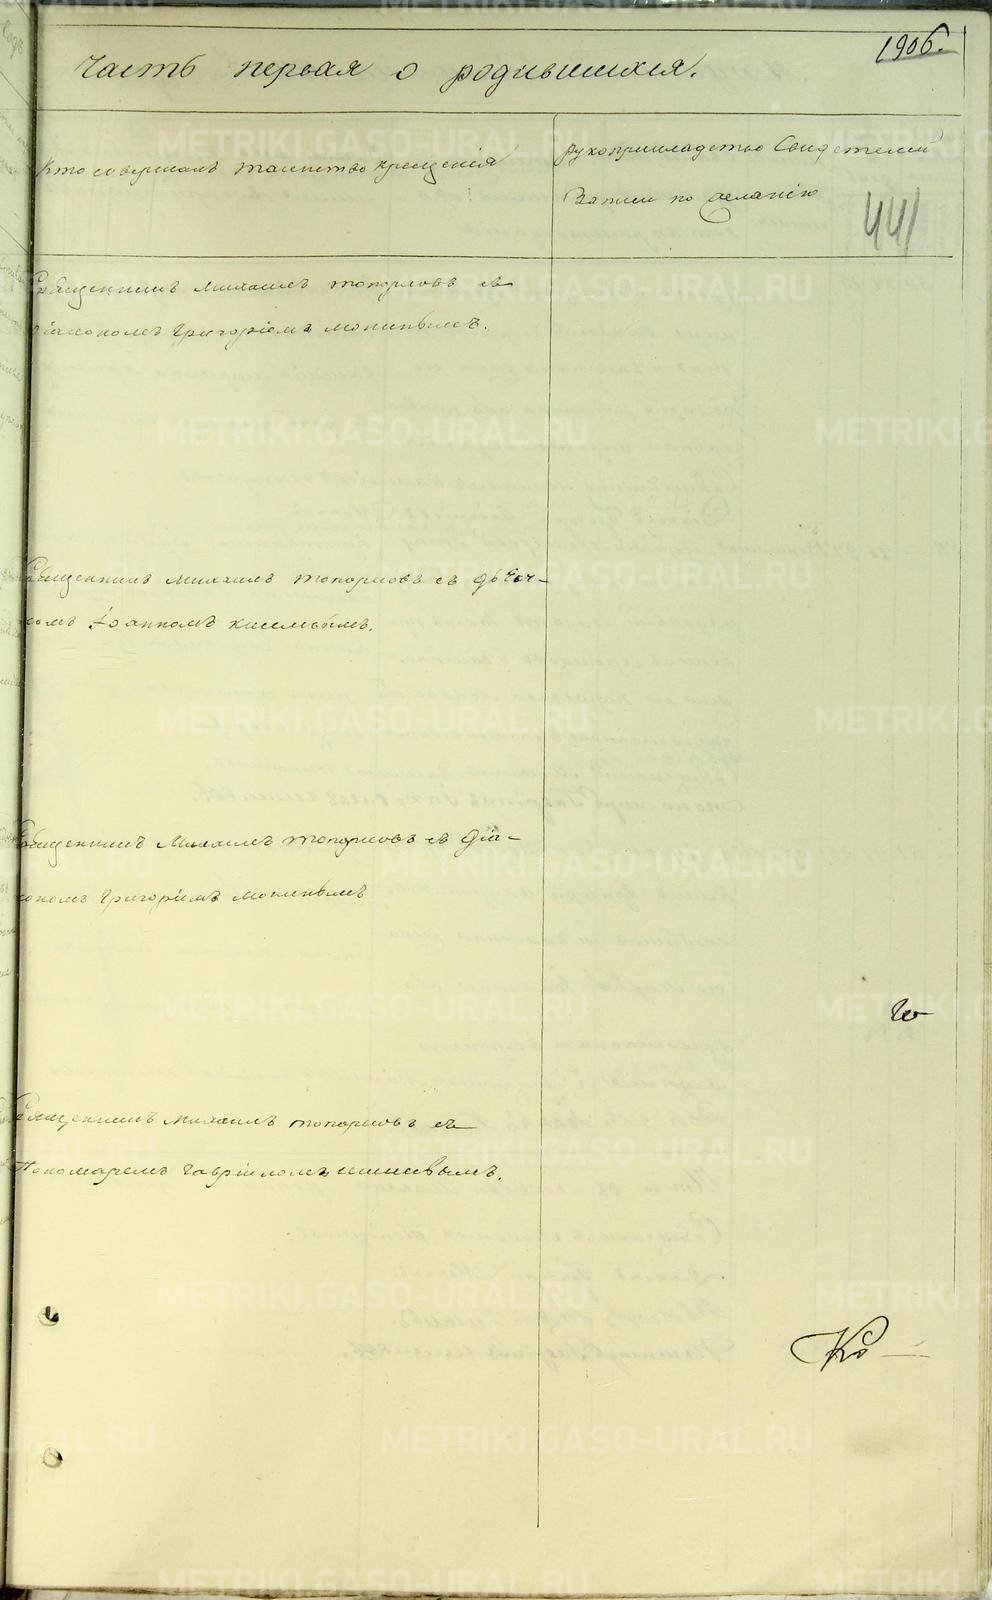 1906.
Часть первая о родившихся.
Кто совершалъ таинство крещенія
Рукоприкладство Свидетелей
Записи по желанію
441
Священникъ Михаилъ Топорковъ съ
діакономъ Григоріемъ
Священникъ Михаилъ Топорковъ съ дьяч-
комъ Іоанномъ
Священникъ Михаилъ Топорковъ съ діа-
кономъ Григоріемъ
Священникъ Михаилъ Топорковъ съ
Пономаремъ Гавріиломъ
Ко